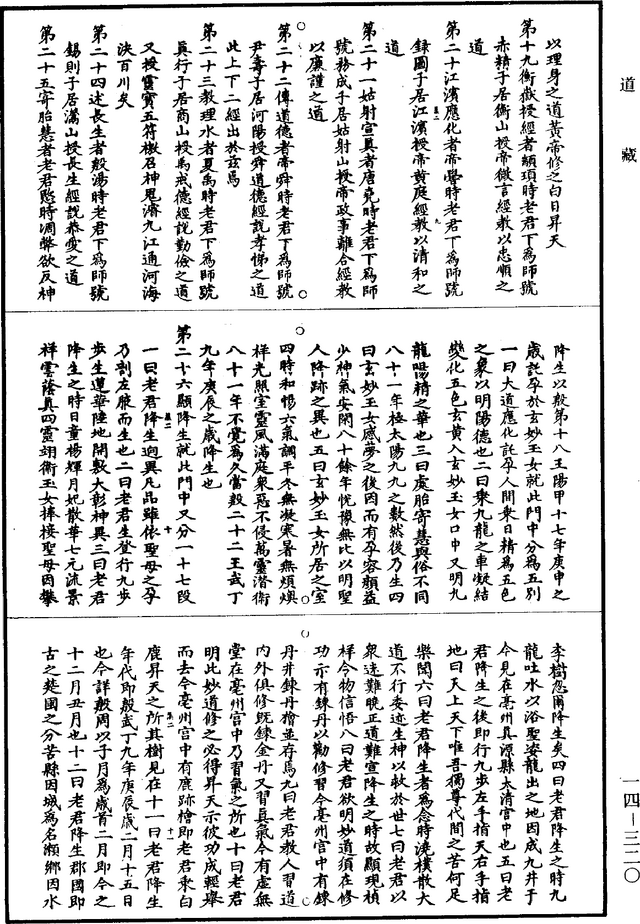 道藏
以理身之道黃帝修之白日昇天
第十九衡嶽授經者顓頊時老君下爲師號
赤精子居衡山授帝微言經教以忠順之
道
第二十江濱應化者帝嚳時老君下爲師號
録圖子居江濱授帝黃庭經教以清和之
道
第二十一姑射宣真者唐堯時老君下爲師
號務成子居姑射山授帝政事離合經教
以廉謹之道
第二十二傳道德者帝舜時老君下爲師號
尹壽子居河陽授舜道德經說孝悌之道
此上下二經出於茲焉
第二十三教理水者夏禹時老君下爲師號
真行子居商山授禹戒德經說勤儉之道
又授靈寶五符檄召神鬼濬九江通河海
決百川矣
第二十四述長生者殷湯時老君下爲師號
錫則子居灊山授長生經說恭愛之道
第二十五寄胎慧者老君愍時凋弊欲反神
降生以殷第十八王陽甲十七年庚申之
歲託孕於玄妙玉女就此門中分爲五別
一曰大道應化託孕人間乘日精爲五色
之象以明陽德也二曰乘九龍之車凝結
變化五色玄黃入玄妙玉女口中又明九
龍陽精之華也三曰處胎寄慧與俗不同
八十一年極太陽九九之數然後乃生四
曰玄妙玉女感夢之後因而有孕容顏益
少神氣安閑八十餘年恍豫無比以明聖
人降跡之異也五曰玄妙玉女所居之室
四時和暢六氣調平冬無凝寒暑無煩燠
祥光照室靈風滿庭衆惡不侵萬靈潛衛
八十一年不覺爲久當殷二十二王武丁
九年庚辰之歲降生也
第二十六顯降生就此門中又分一十七段
一曰老君降生迥異凡品雖依聖母之孕
乃剖左腋而生也二曰老君生登行九步
步生蓮華陸地開敷大彰神異三曰老君
降生之時日童楊輝月妃散華七元流景
祥雲蔭真四靈翊衛玉女捧接聖母因攀
李樹忽爾降生矣四曰老君降生之時九
龍吐水以浴聖姿龍出之地因成九井于
今見在亳州真源縣太清宮中也五曰老
君降生之後即行九步左手指天右手指
地曰天上天下唯吾獨尊代間之苦何足
樂聞六曰老君降生者爲念時澆樸散大
道不行委迹生神以救於世七曰老君以
衆迷難曉正道難宣降生之時故顯現禎
祥令物信悟八曰老君欲明妙道須在修
功示有鍊丹以勸修習今亳州宮中有鍊
丹井鍊丹檜並存焉九曰老君教人習道
內外俱修既鍊金丹又習真氣今有虛無
堂在亳州宮中乃習氣之所也十曰老君
明此妙道修之必得昇天示彼功成輕舉
而去今亳州宮中有鹿跡檜即老君乘白
鹿昇天之所其樹見在十一曰老君降生
年代即殷武丁九年庚辰歲二月十五日
也今詳殷周以子月爲歲首二月即今之
十二月丑月也十二曰老君降生郡國即
古之楚國之分苦縣因城爲名瀨鄉因水
一四—三二〇